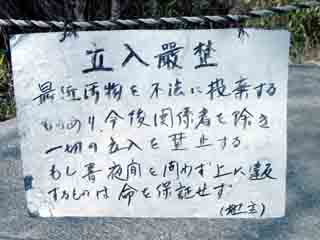 立入厳禁
最近汚物を不法に投棄する
ものあり、今後関係者を除き
一切の立入を禁止する。
もし昼夜間を問わず上に違反
するものは命を保証せず
(地主)